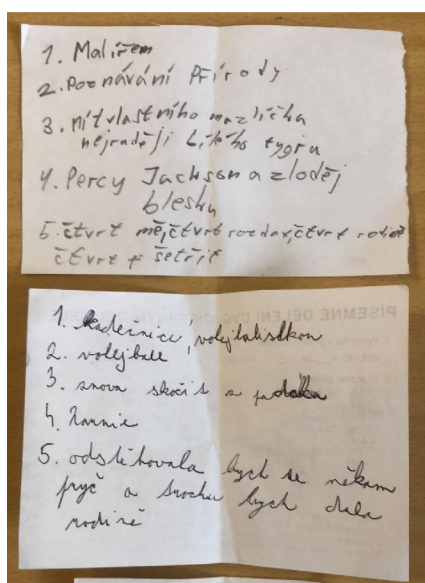 1. Malířem
2. Poznávání Přírody
3. mít vlastního mazlíčka
nejraději bílého tygra
4. Percy Jackson a zloděj
blesku
5. čtvrt mě, čtvrt rozdav, čtvrt
čtvrt šetřit
1. kadeřnicí, volejbalistkou
2. volejball
3. znova skočit z padáku
4.
5. odstěhovala bych se někam
pryč a trochu bych dala
rodině
PÍSEMNÉ DĚLENÍ